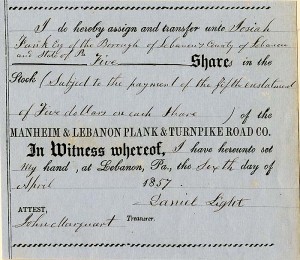 I do hereby assign and transfer unto Josiah
Funk Esq of the Borough of Lebanon & County of Lebanon
and State of Pa Five Share in the
Stock (Subject to the payment of the fifth enstalment
of Five dollars on each share ) of the
MANHEIM & LEBANON PLANK & TURNPIKE ROAD CO.
In Witness whereof, I have hereunto set
my hand, at Lebanon, Pa., the Sixth day of
April 1857.
Daniel Light
ATTEST,
John Marquart Treasurer.